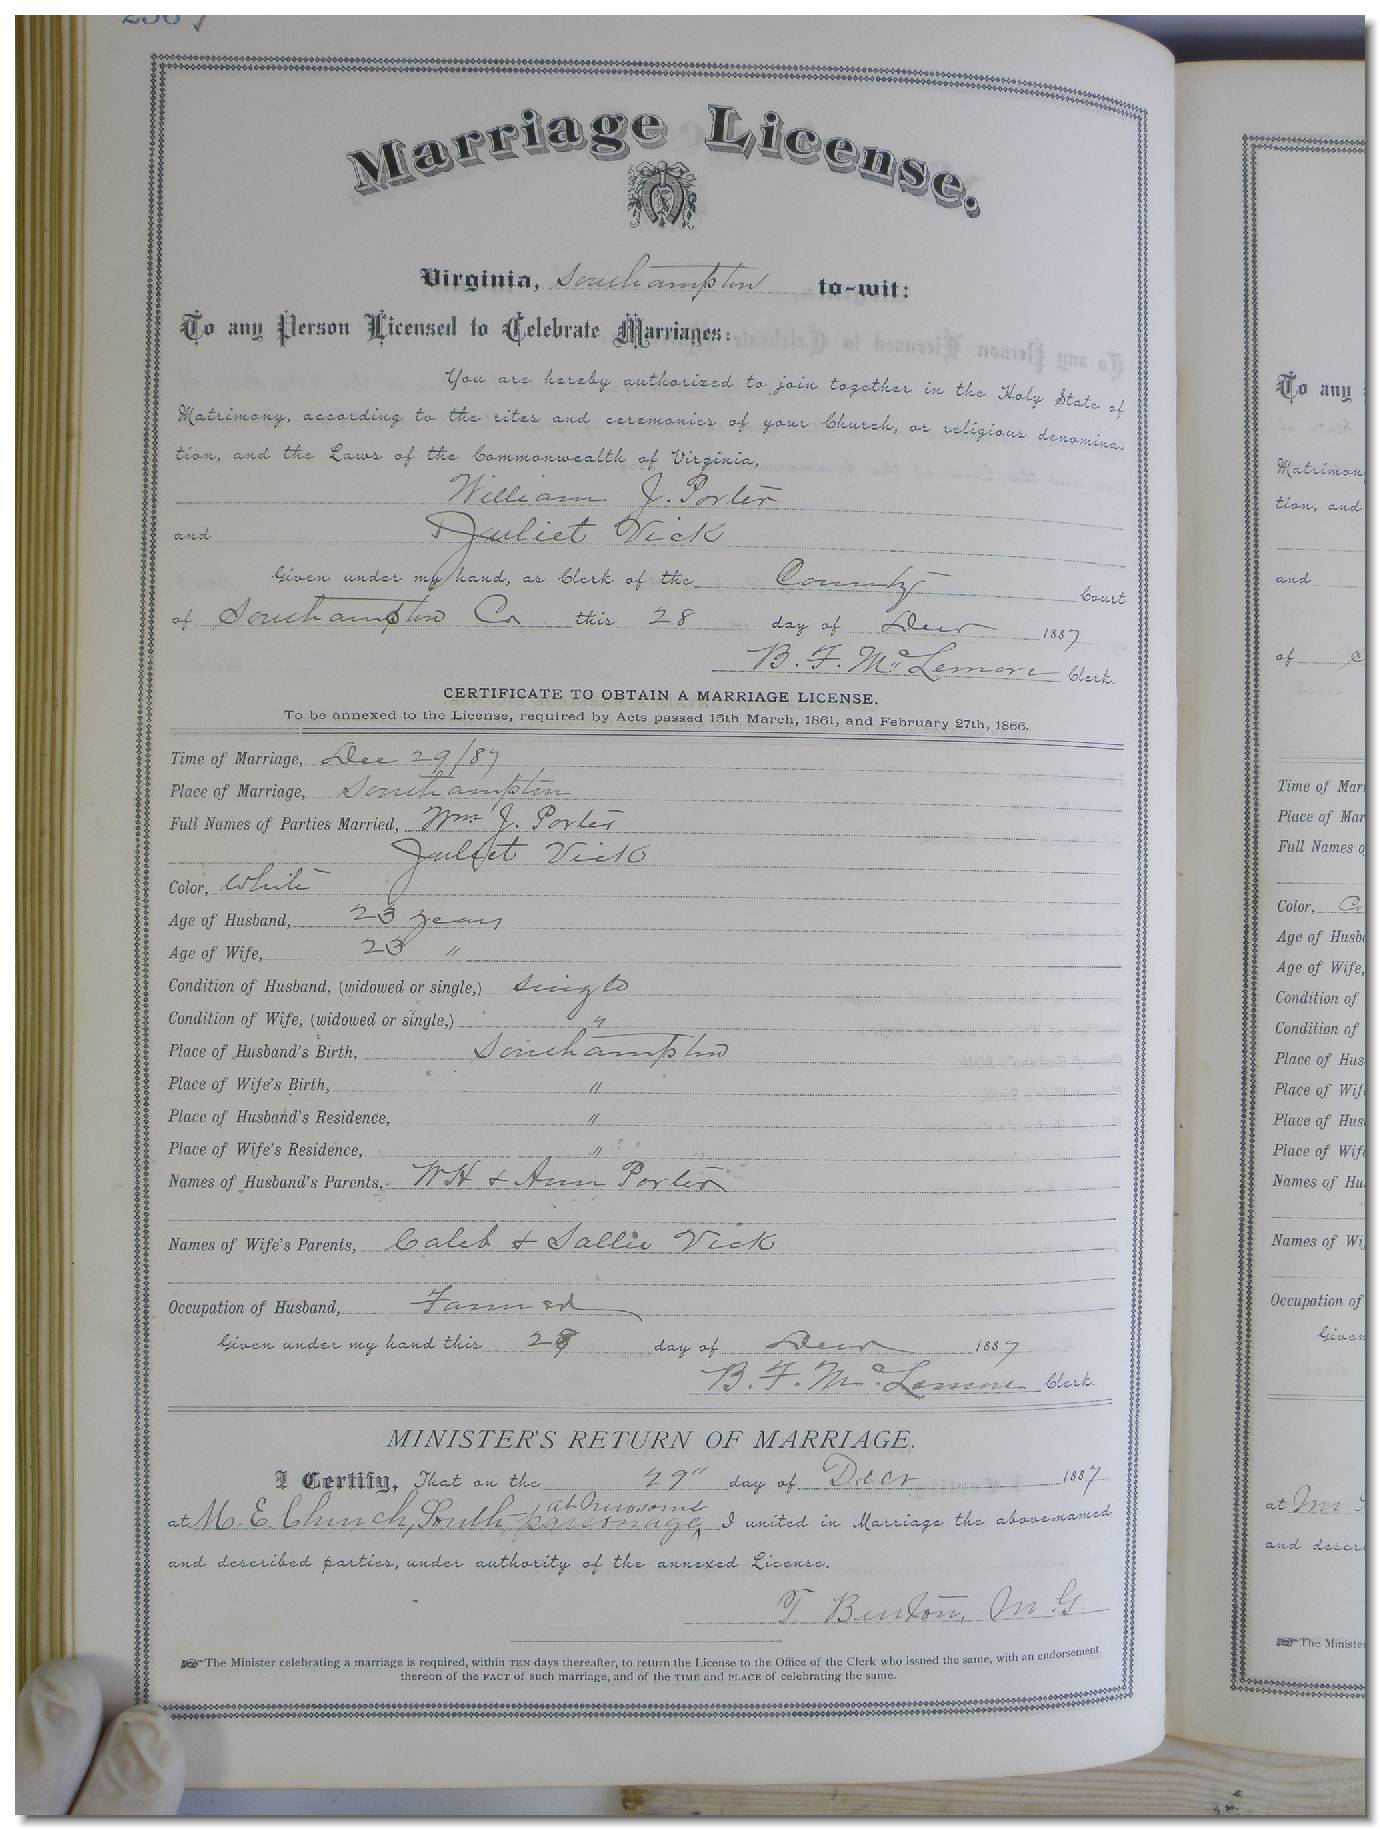 Marriage License.
Virginia, Southampton to-wit:
To any Person Licensed to Celebrate Marriages:
You are hereby authorized to join together in the Holy State of
Matrimony, according to the rites and ceremonies of your Church, or religious denomina-
tion, and the Laws of the Commonwealth of Virginia,
William J. Porter
and Juliet Vick
Given under my hand, as Clerk of the County Court
of Southampton Co this 28 day of Decr 1887
B. F. McLemore Clerk.
CERTIFICATE TO OBTAIN A MARRIAGE LICENSE.
To be annexed to the License, required by Acts passed 15th March, 1861, and February 27th, 1866.
Time of Marriage, Dec 29/87
Place of Marriage, Southampton
Full Names of Parties Married, Wm J. Porter
Juliet Vick
Color, White
Age of Husband, 23 years
Age of Wife, 23 "
Condition of Husband, (widowed or single,) single
Condition of Wife, (widowed or single,) "
Place of Husband's Birth, Southampton
Place of Wife's Birth, "
Place of Husband's Residence, "
Place of Wife's Residence, "
Names of Husband's Parents, W H & Ann Porter
Names of Wife's Parents, Caleb & Sallie Vick
Occupation of Husband, Farmer
Given under my hand this 28 day of Decr 1887
B. F. McLemore Clerk.
MINISTER'S RETURN OF MARRIAGE.
I Certify, That on the 29" day of Decr 1887
at Newsoms
at M. E. Church, South, parsonage, I united in Marriage the above-named
and described parties, under authority of the annexed License.
T Benton, M. G.
The Minister celebrating a marriage is required, within TEN days thereafter, to return the License to the Office of the Clerk who issued the same, with an endorsement
thereon of the FACT of such marriage, and of the TIME and PLACE of celebrating the same.
To any
Matrimon
tion, and
and
of
Time of Mar
Place of Mar
Full Names o
Color, Co
Age of Husb
Age of Wife,
Condition of
Condition of
Place of Hus
Place of Wif
Place of Hus
Place of Wif
Names of Hu
Names of Wi
Occupation of
Given
at
and descri
The Ministe